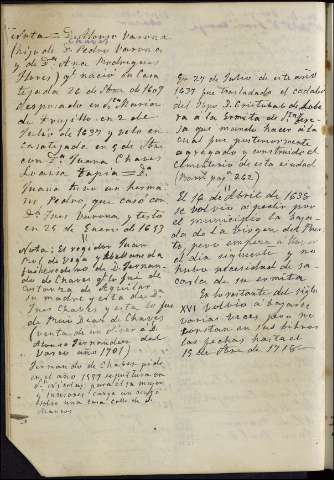 Nota = Dn Alfonso Varona
Chaves
(hijo de Dn Pedro Varona
y de Dª Ana Rodriguez
Flores) qe nació en Casa
tejada 26 de Sbre de 1609
desposado en Sta Maria
de Trujillo en 2 de
Julio de 1637 y velo en
Casatejada en 9 de Sbre
con Dª Juana Chaves
Tapia = Dª
Juana tuvo un herma
no Pedro, que caso con
Dª Ines Varona, y testó
en 25 de Enero de 1653
Nota: El regidor Juan
de Vega y
fue de Dn Fernan
do de Chaves qe lo fue de
Costanza de Aguilar
su madre y esta de Dª
Ines Chaves y esta lo fue
de Nuño Diaz de Chaves
(venta de un a Dn
Alonso Fernandez del
Varco año 1701)
Fernando de Chaves pidio
en el año 1559 sepultura en
Sn Nicolas, para el su mujer
y carga un
sobre una casa calle de
En 27 de Julio de este año
1637 fue trasladado el cadaver
del Dn Cristobal de Lobera
a la ermita de Sta
sa que mandó hacer a la
cual fue posteriormente
agregado y construido el
Cimenterio de esta ciudad
pag. 262)
El 16 de Abril de 1638
se volvió a pedir por
el municipio la baja
da de la Virgen del Puer
to, pero empezo a llover
el dia siguiente y no
hubo necesidad de sa
carla de su ermita
En lo restante del siglo
XVI volvio a bajarse
varias veces pero no
constan en sus libros
las fechas hasta el
15 de Sbre de 1716